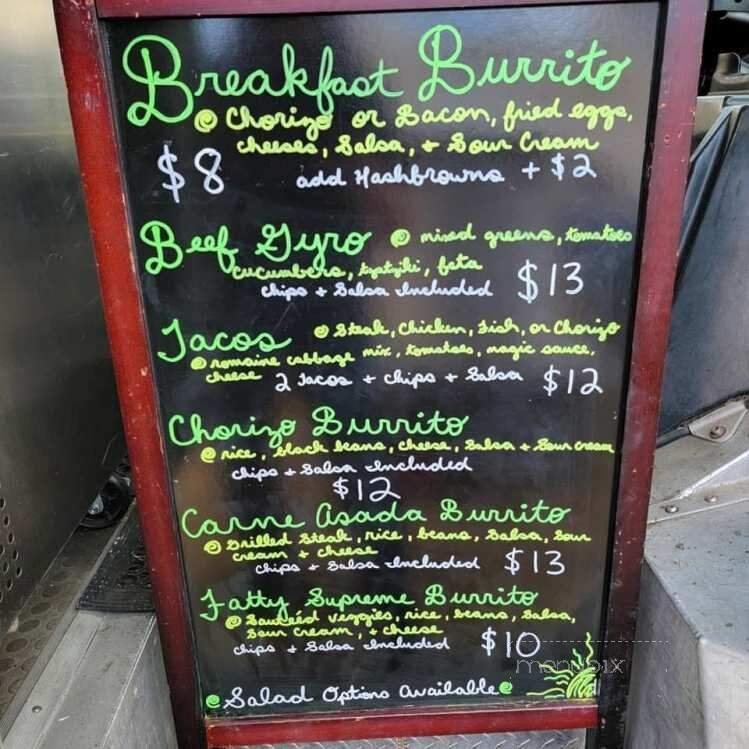 Breakfast Burrito
@ Chorizo or Bacon, fried eggs,
cheeses, Salsa, + Sour Cream
$8 add Hashbrowns + $2
Beef Gyro @ mixed greens, tomatoes
cucumbers, tzatziki, feta
chips + Salsa included $13
Tacos @ Steak, Chicken, Fish, or Chorizo
@ romaine cabbage mix, tomatoes, magic sauce,
cheese 2 Tacos + chips + Salsa $12
Chorizo Burrito
@ rice, black beans, cheese, Salsa + Sour cream
chips + Salsa included
$12
Carne Asada Burrito
@ Grilled Steak, rice, beans, Salsa, Sour
cream + cheese
chips + Salsa included $13
Fatty Supreme Burrito
@ Sauteéd veggies, rice, beans, Salsa,
Sour Cream, + cheese
chips + Salsa included $10
menupix
@ Salad Options Available @